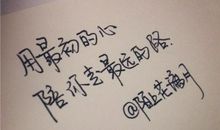 用最初的心
陪你走最远的路.
@陌上芒漓月